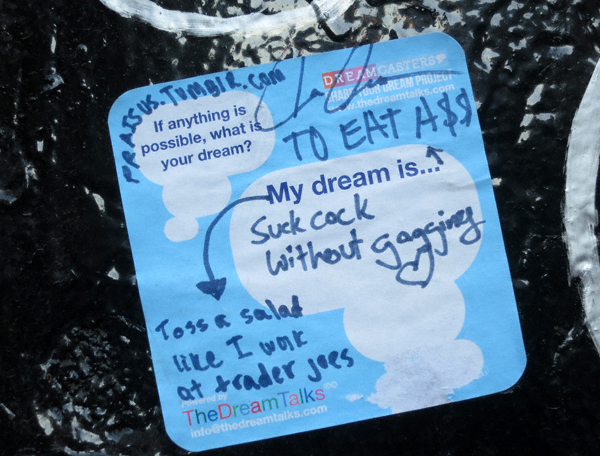 PRAISUS.TUMBLR.COM
If anything is
possible, what is
your dream?
DREAMCASTERS
SHARE YOUR DREAM PROJECT
www.thedreamtalks.com
TO EAT A$$
My dream is...
Suck cock
without gagging
Toss a salad
like I work
at trader joes
Powered by
TheDreamTalks
info@thedreamtalks.com